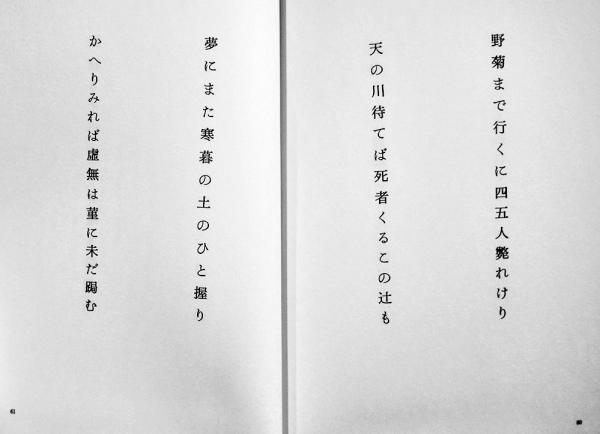 野菊まで行くに四五人斃れけり
天の川待てば死者くるこの辻も
60
夢にまた寒暮の土のひと握り
かへりみれば虚無は菫に未だ跼む
61